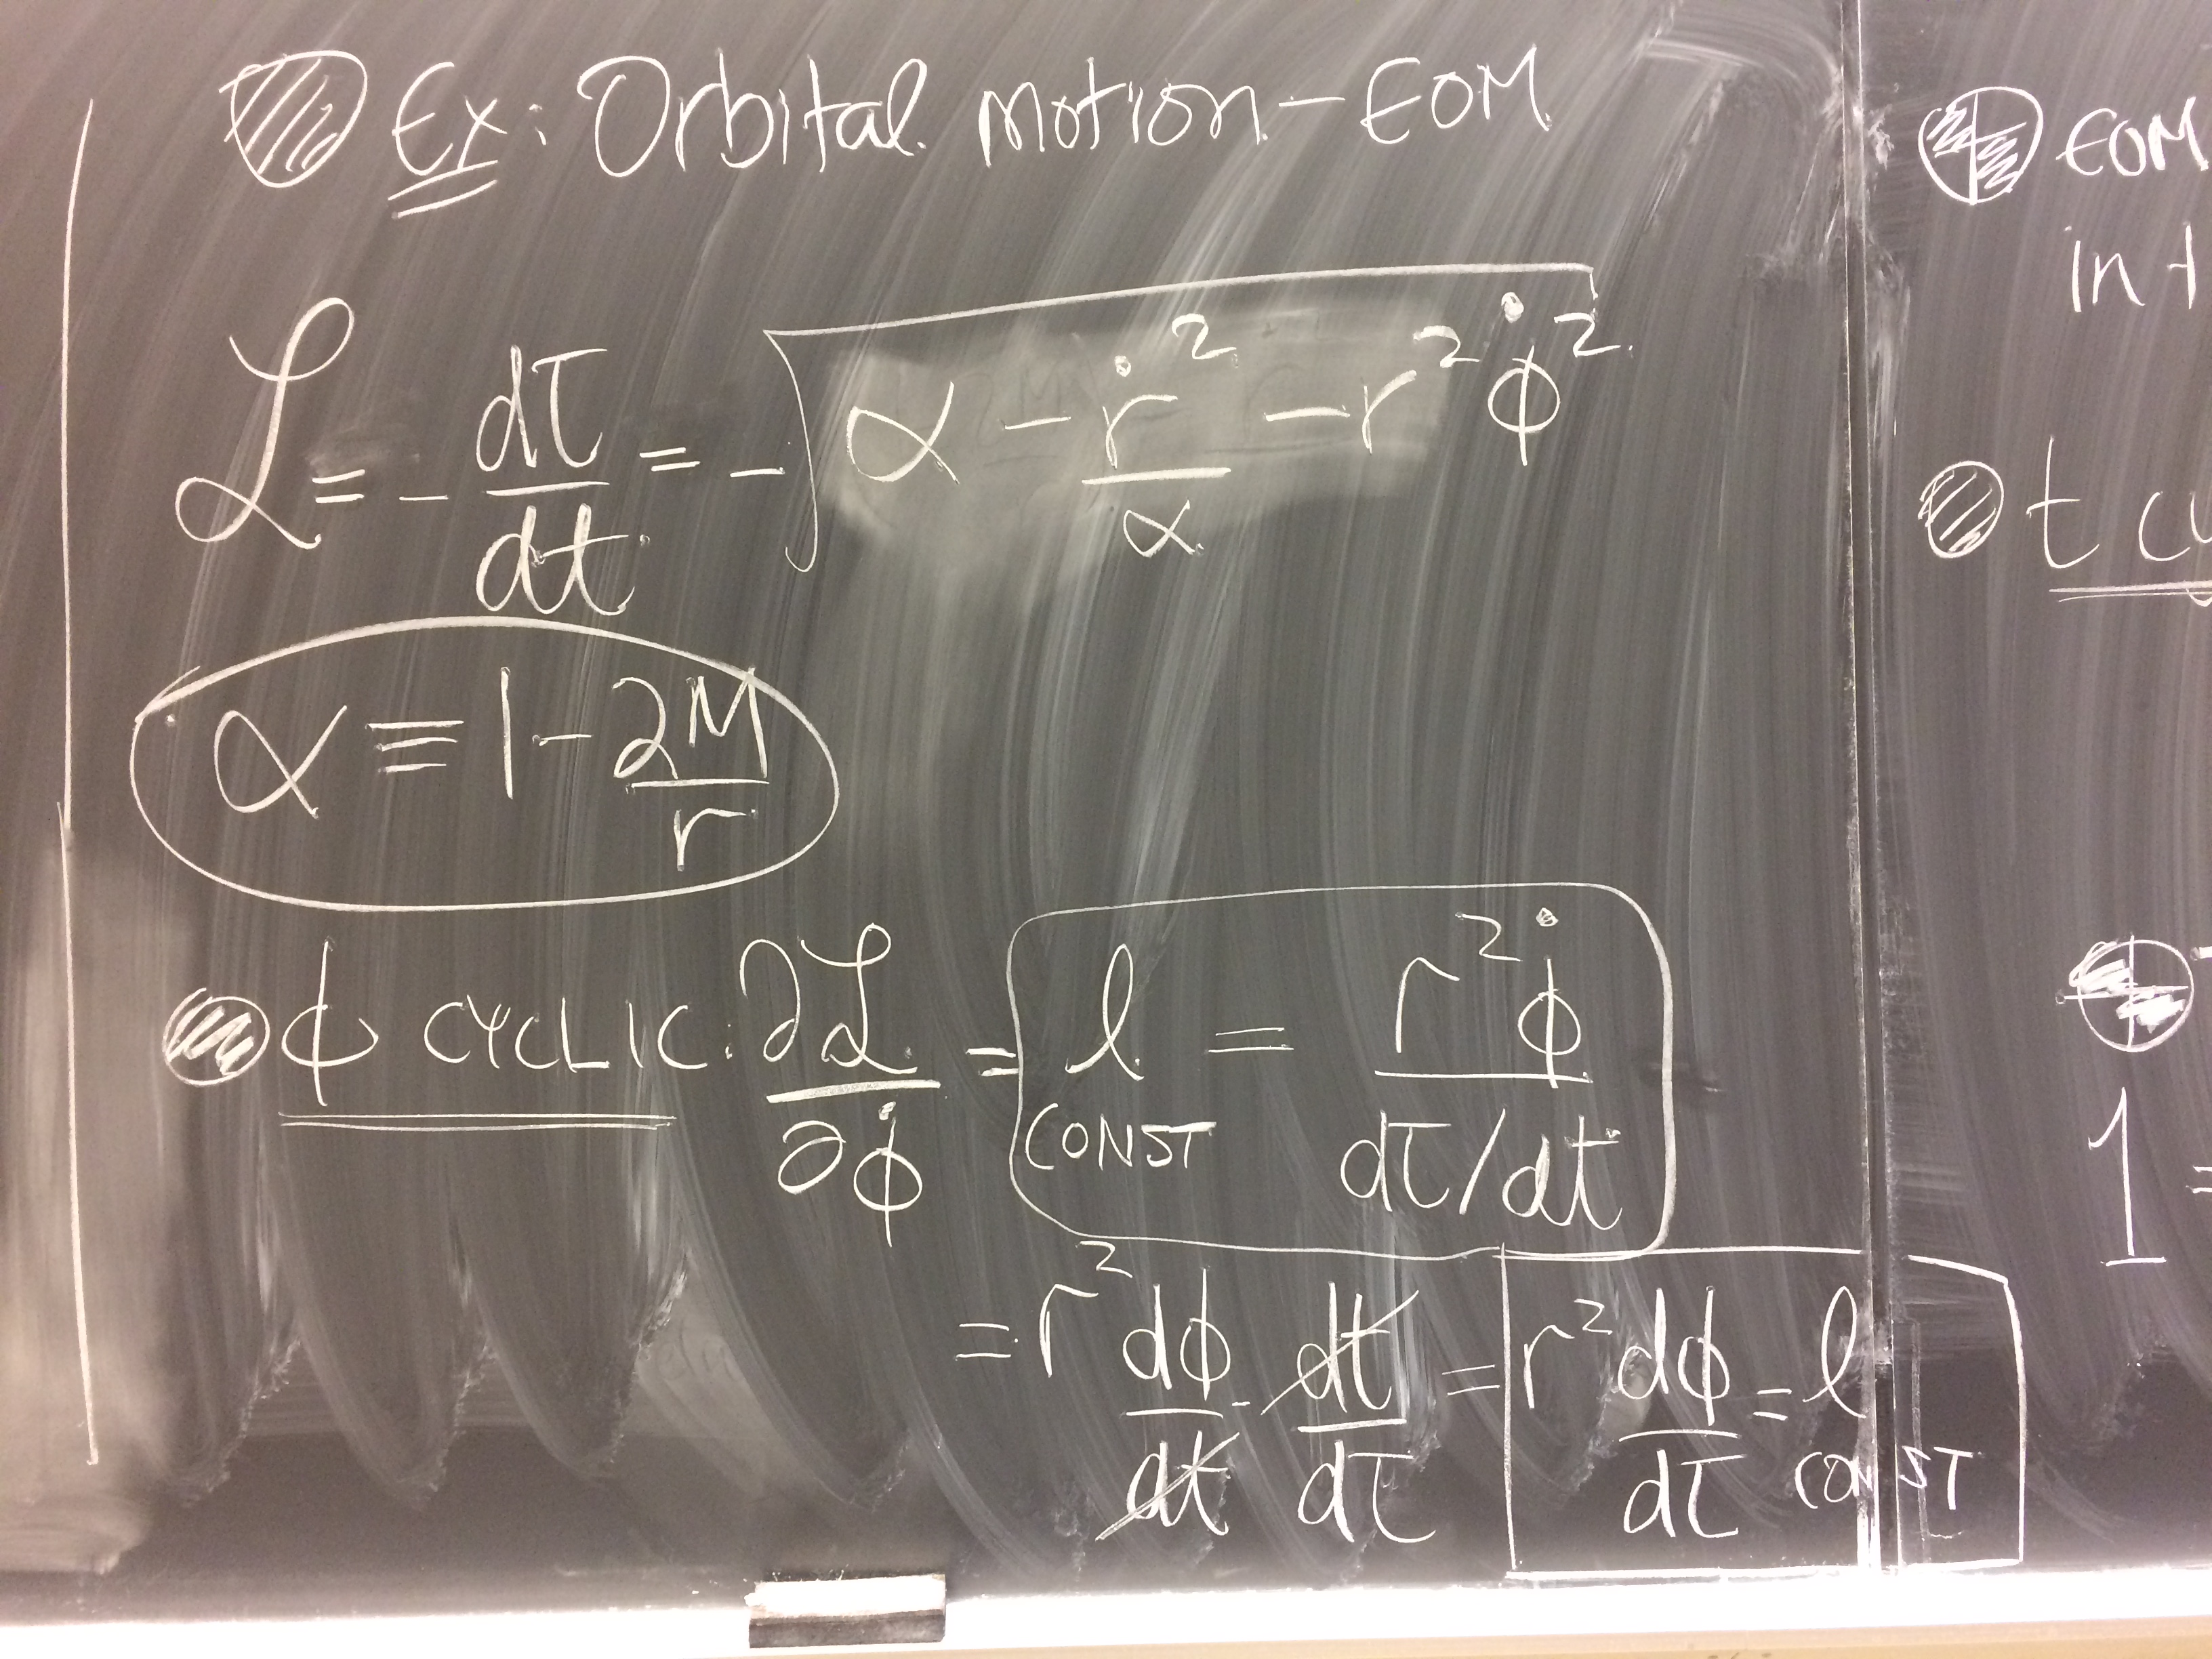 Ex: Orbital motion - EOM
ℒ = - dτ/dt = - √(α - ṙ²/α - r² φ̇²)
α ≡ 1 - 2M/r
φ CYCLIC: ∂ℒ/∂φ̇ = l CONST = r² φ̇ / (dτ/dt)
= r² dφ/dt · dt/dτ = r² dφ/dτ = l CONST
EOM
in t
t cy
1 =